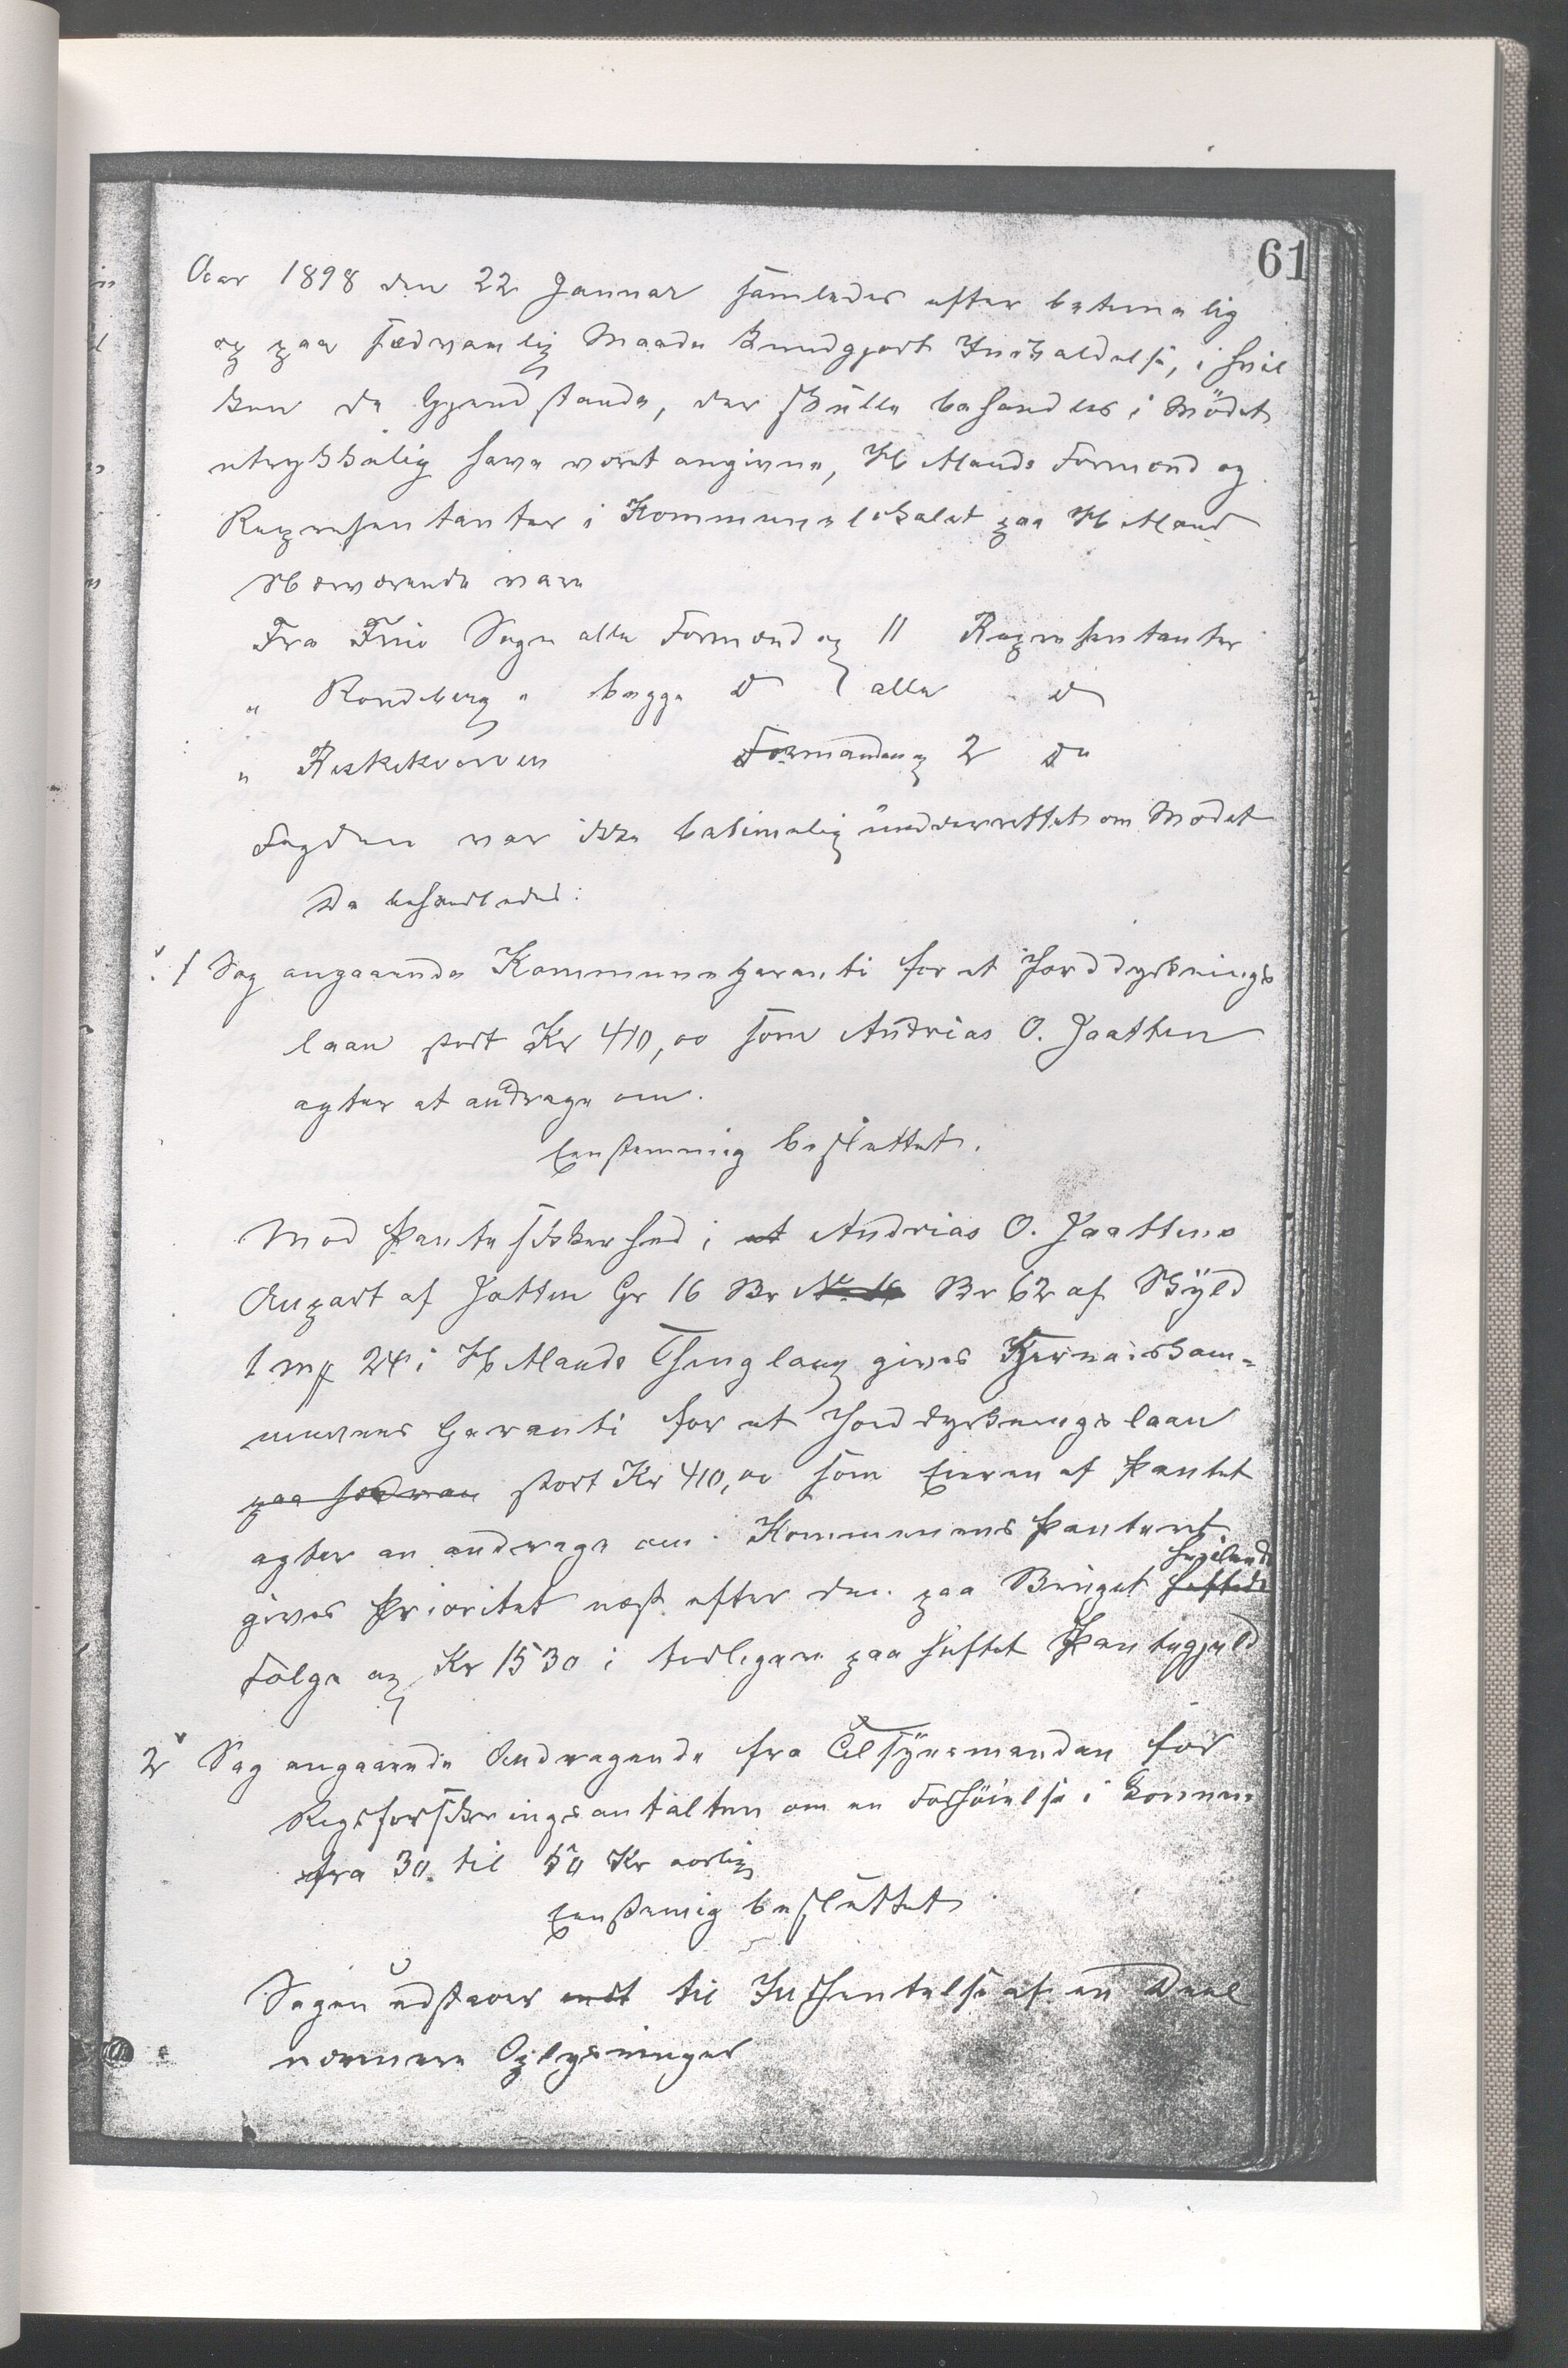 61
Aar 1898 den 22 Januar samledes efter betimelig
og paa sædvanlig Maade kundgjort Indkaldelse, i hvil
ken de Gjenstande, der skulle behandles i Mödet
utrykkelig have været angivne, Hetlands Formænd og
Repræsentanter i Kommunelokalet paa Hetland
Nærværende vare
Fra Frue Sogn alle Formænd og 11 Repræsentanter
" Randeberg " begge D alle D
" Riskekværven Formanden og 2 Do
Fogden var ikke betimelig underrettet om Mödet
Da behandledes:
1 Sag angaaende Kommunegaranti for et Jorddyrknings
laan stort Kr 410,00 som Andrias O. Jaatten
agter at andrage om.
Eenstemmig besluttet.
Mod Pantesikkerhed i et Andrias O. Jaattens
Anpart af Jatten Gr 16 Br No 16 Br 62 af Skyld
1 mk 24 i Hetlands Thinglaug gives Herredskom=
munens Garanti for et Jorddyrkningslaan
paa stort Kr 410,00 som Eieren af Pantet
agter an andrage om. Kommunens Panteret
gives Prioritet næst efter den paa Bruget hvilende
heftede
Folge og Kr 1530 i tidligere paa heftet Pantegjæld
2 Sag angaaende Andragende fra Tilsynsmanden for
Rigsforsikringsantalten om en Forhöielse i Lönnen
fra 30 til 50 Kr aarlig
Eenstemig besluttet
Sagen udstaaer til Indhentelse af en Deel
nærmere Oplysninger